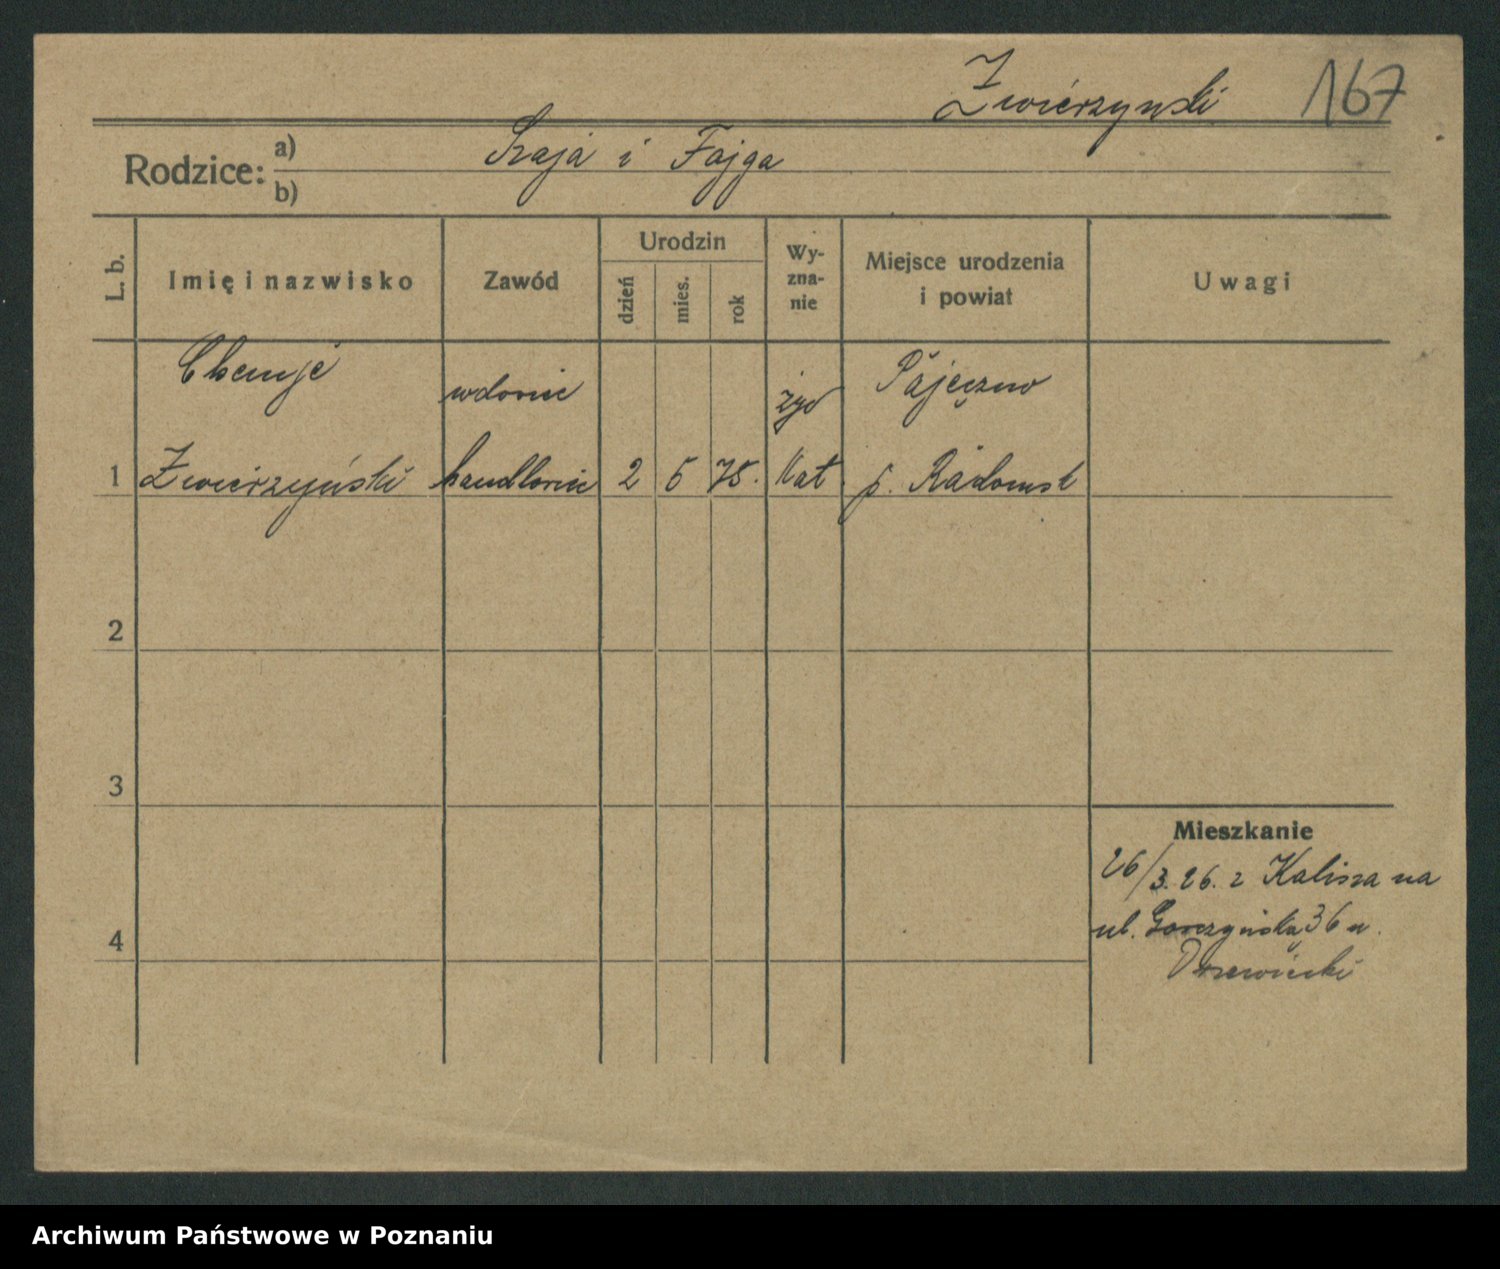 Zwierzynski 167
Rodzice: a) Szaja i Fajga
b)
L. b. Imię i nazwisko Zawód Urodzin dzień mies. rok Wy-zna-nie Miejsce urodzenia i powiat Uwagi
wdowiec żyd Pajęczno
1 Zwierzyński handlowiec 2 5 75. Kat. p. Radomsk
2
3
Mieszkanie
26/3.26. z Kalisza na
ul. Gorczyńską 36 u.
4
Archiwum Państwowe w Poznaniu